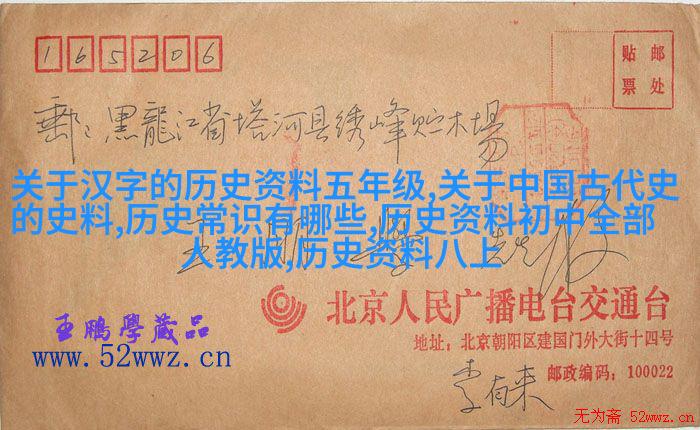 165206
贴邮
票处
邮:黑龍江省塔河县绣峰贮木場
关于汉字的历史资料五年级,关于中国古代史
的史料,历史常识有哪些,历史资料初中全部
人教版,历史资料八上
北京人民广播电台交通台
地址：北京朝阳区建国门外大街十四号
王鹏學藏品
www.52wwz.cn
李有来
邮政编码：100022
无为斋 52wwz.cn